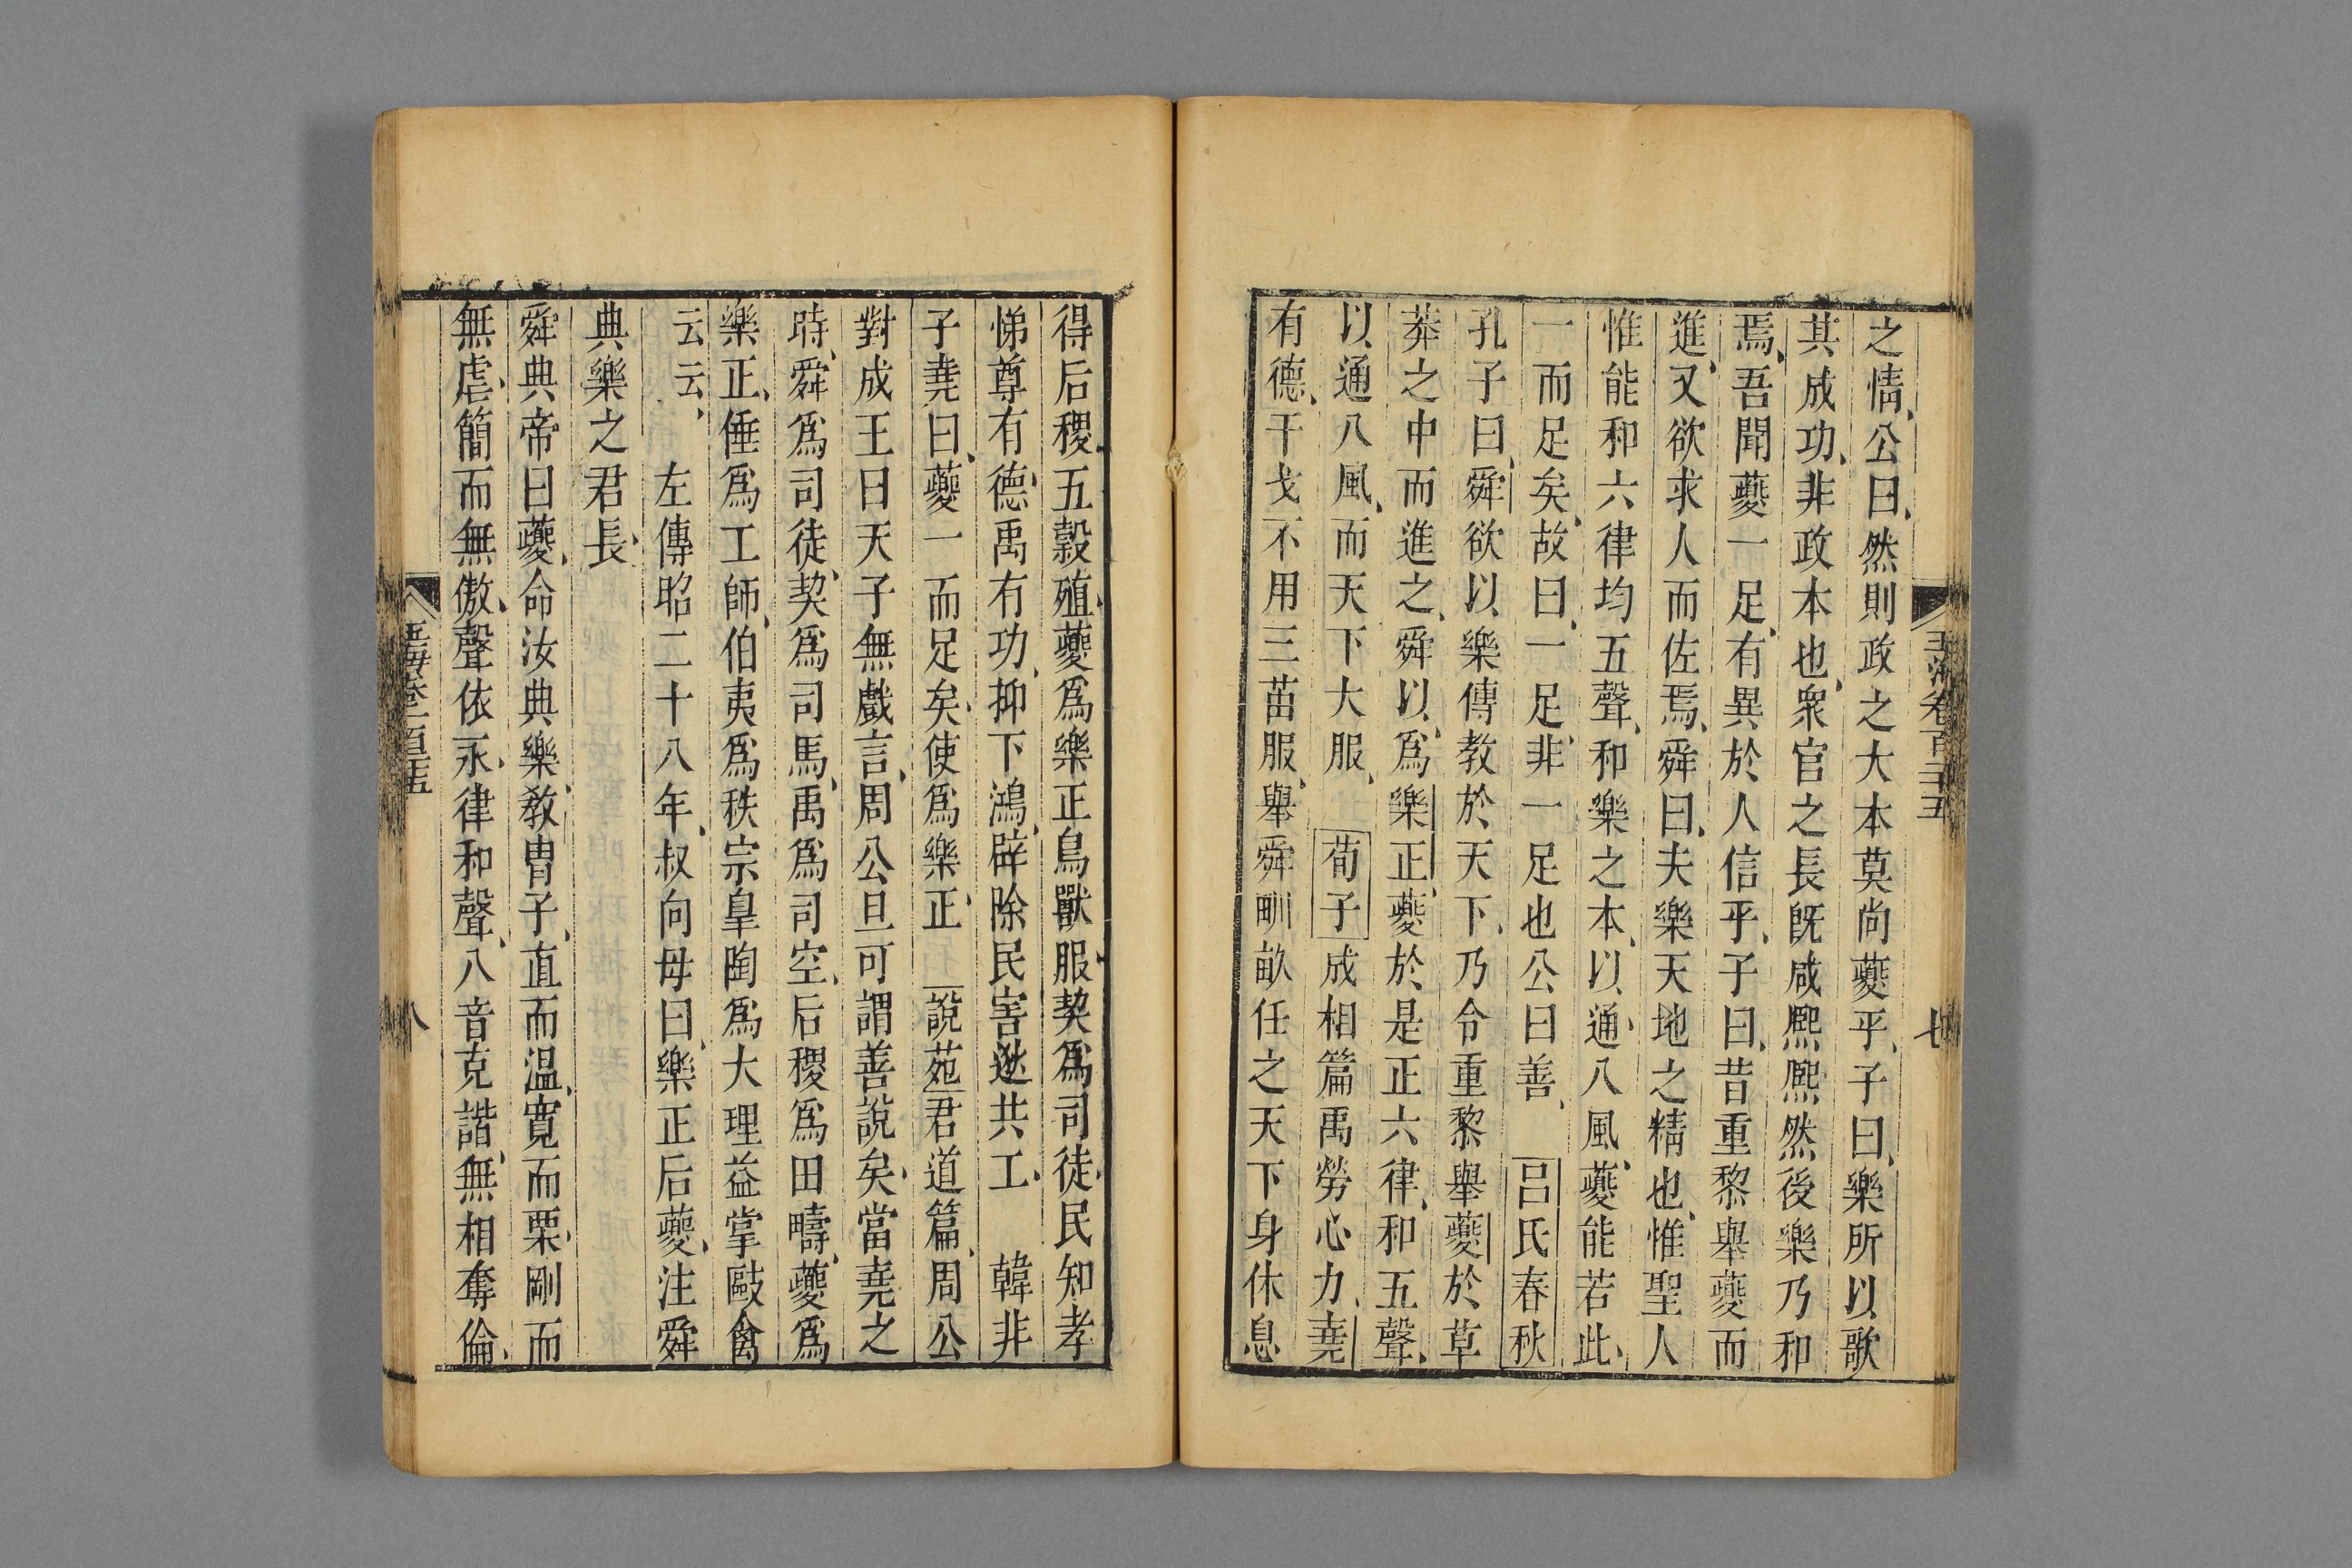 玉海卷百二十五
七
之情公曰然則政之大本莫尚夔乎子曰樂所以歌
其成功非政本也衆官之長既咸熙熙然後樂乃和
焉吾聞夔一足有異於人信乎子曰昔重黎舉夔而
進又欲求人而佐焉舜曰夫樂天地之精也惟聖人
惟能和六律均五聲和樂之本以通八風夔能若此
一而足矣故曰一足非一足也公曰善 呂氏春秋
孔子曰舜欲以樂傳教於天下乃令重黎舉夔於草
莽之中而進之舜以爲樂正夔於是正六律和五聲
以通八風而天下大服 荀子成相篇禹勞心力堯
有德干戈不用三苗服舉舜甽畝任之天下身休息
得后稷五穀殖夔爲樂正鳥獸服契爲司徒民知孝
悌尊有德禹有功抑下鴻辟除民害逖共工 韓非
子堯曰夔一而足矣使爲樂正 說苑君道篇周公
對成王曰天子無戲言周公旦可謂善說矣當堯之
時舜爲司徒契爲司馬禹爲司空后稷爲田疇夔爲
樂正倕爲工師伯夷爲秩宗皐陶爲大理益掌敺禽
云云 左傳昭二十八年叔向母曰樂正后夔注舜
典樂之君長
舜典帝曰夔命汝典樂教胄子直而溫寛而栗剛而
無虐簡而無傲聲依永律和聲八音克諧無相奪倫
玉海卷一百二十五
八